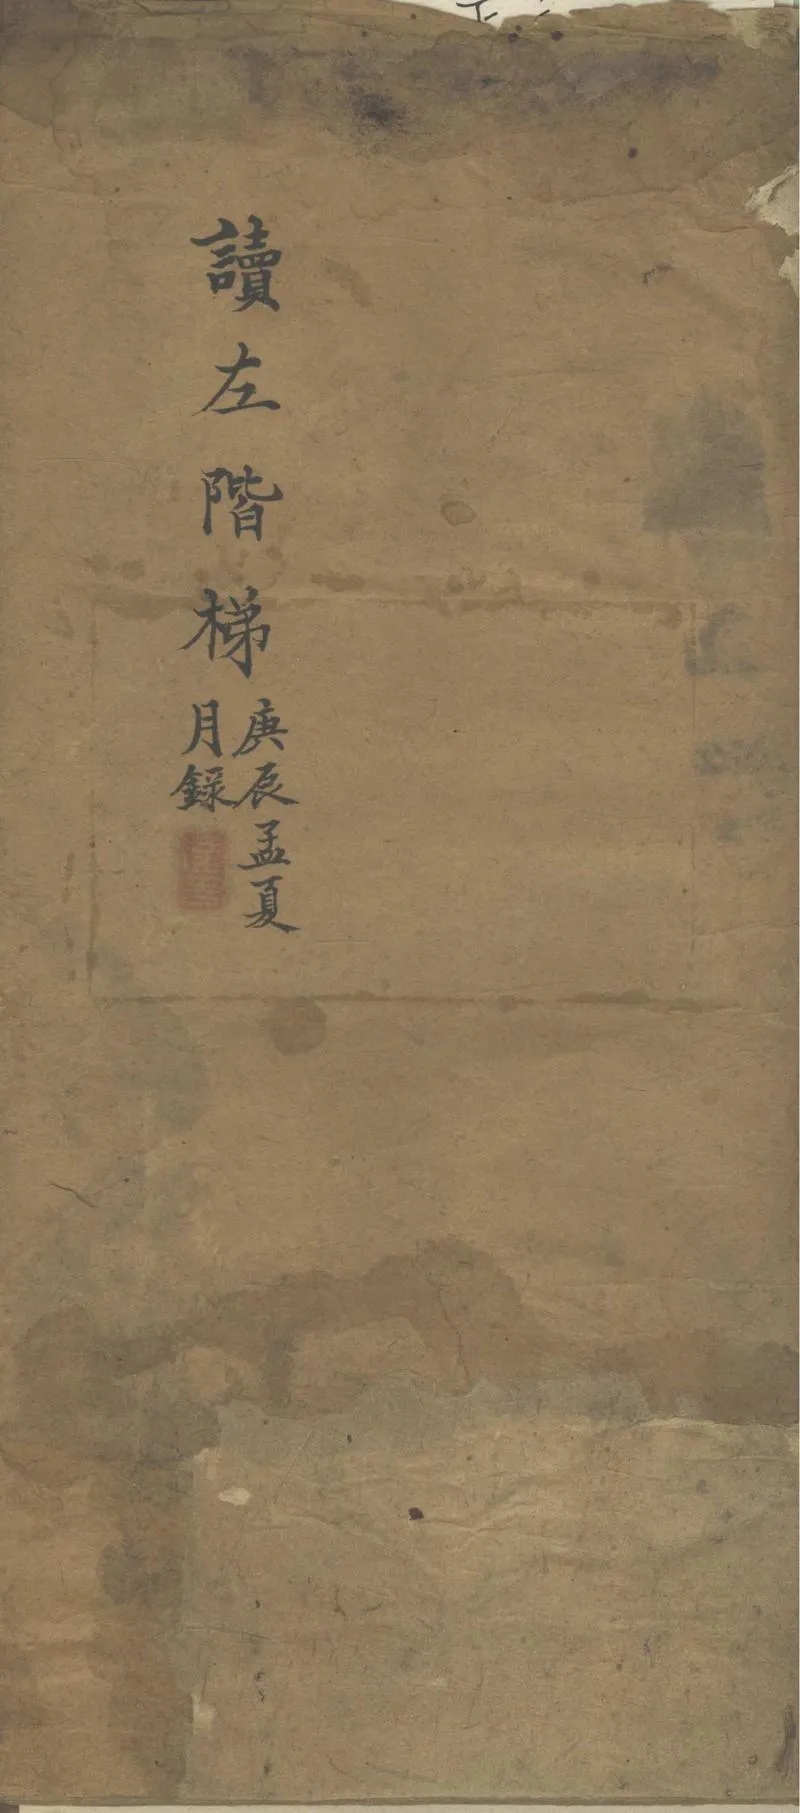 讀左階梯
庚辰孟夏
月錄